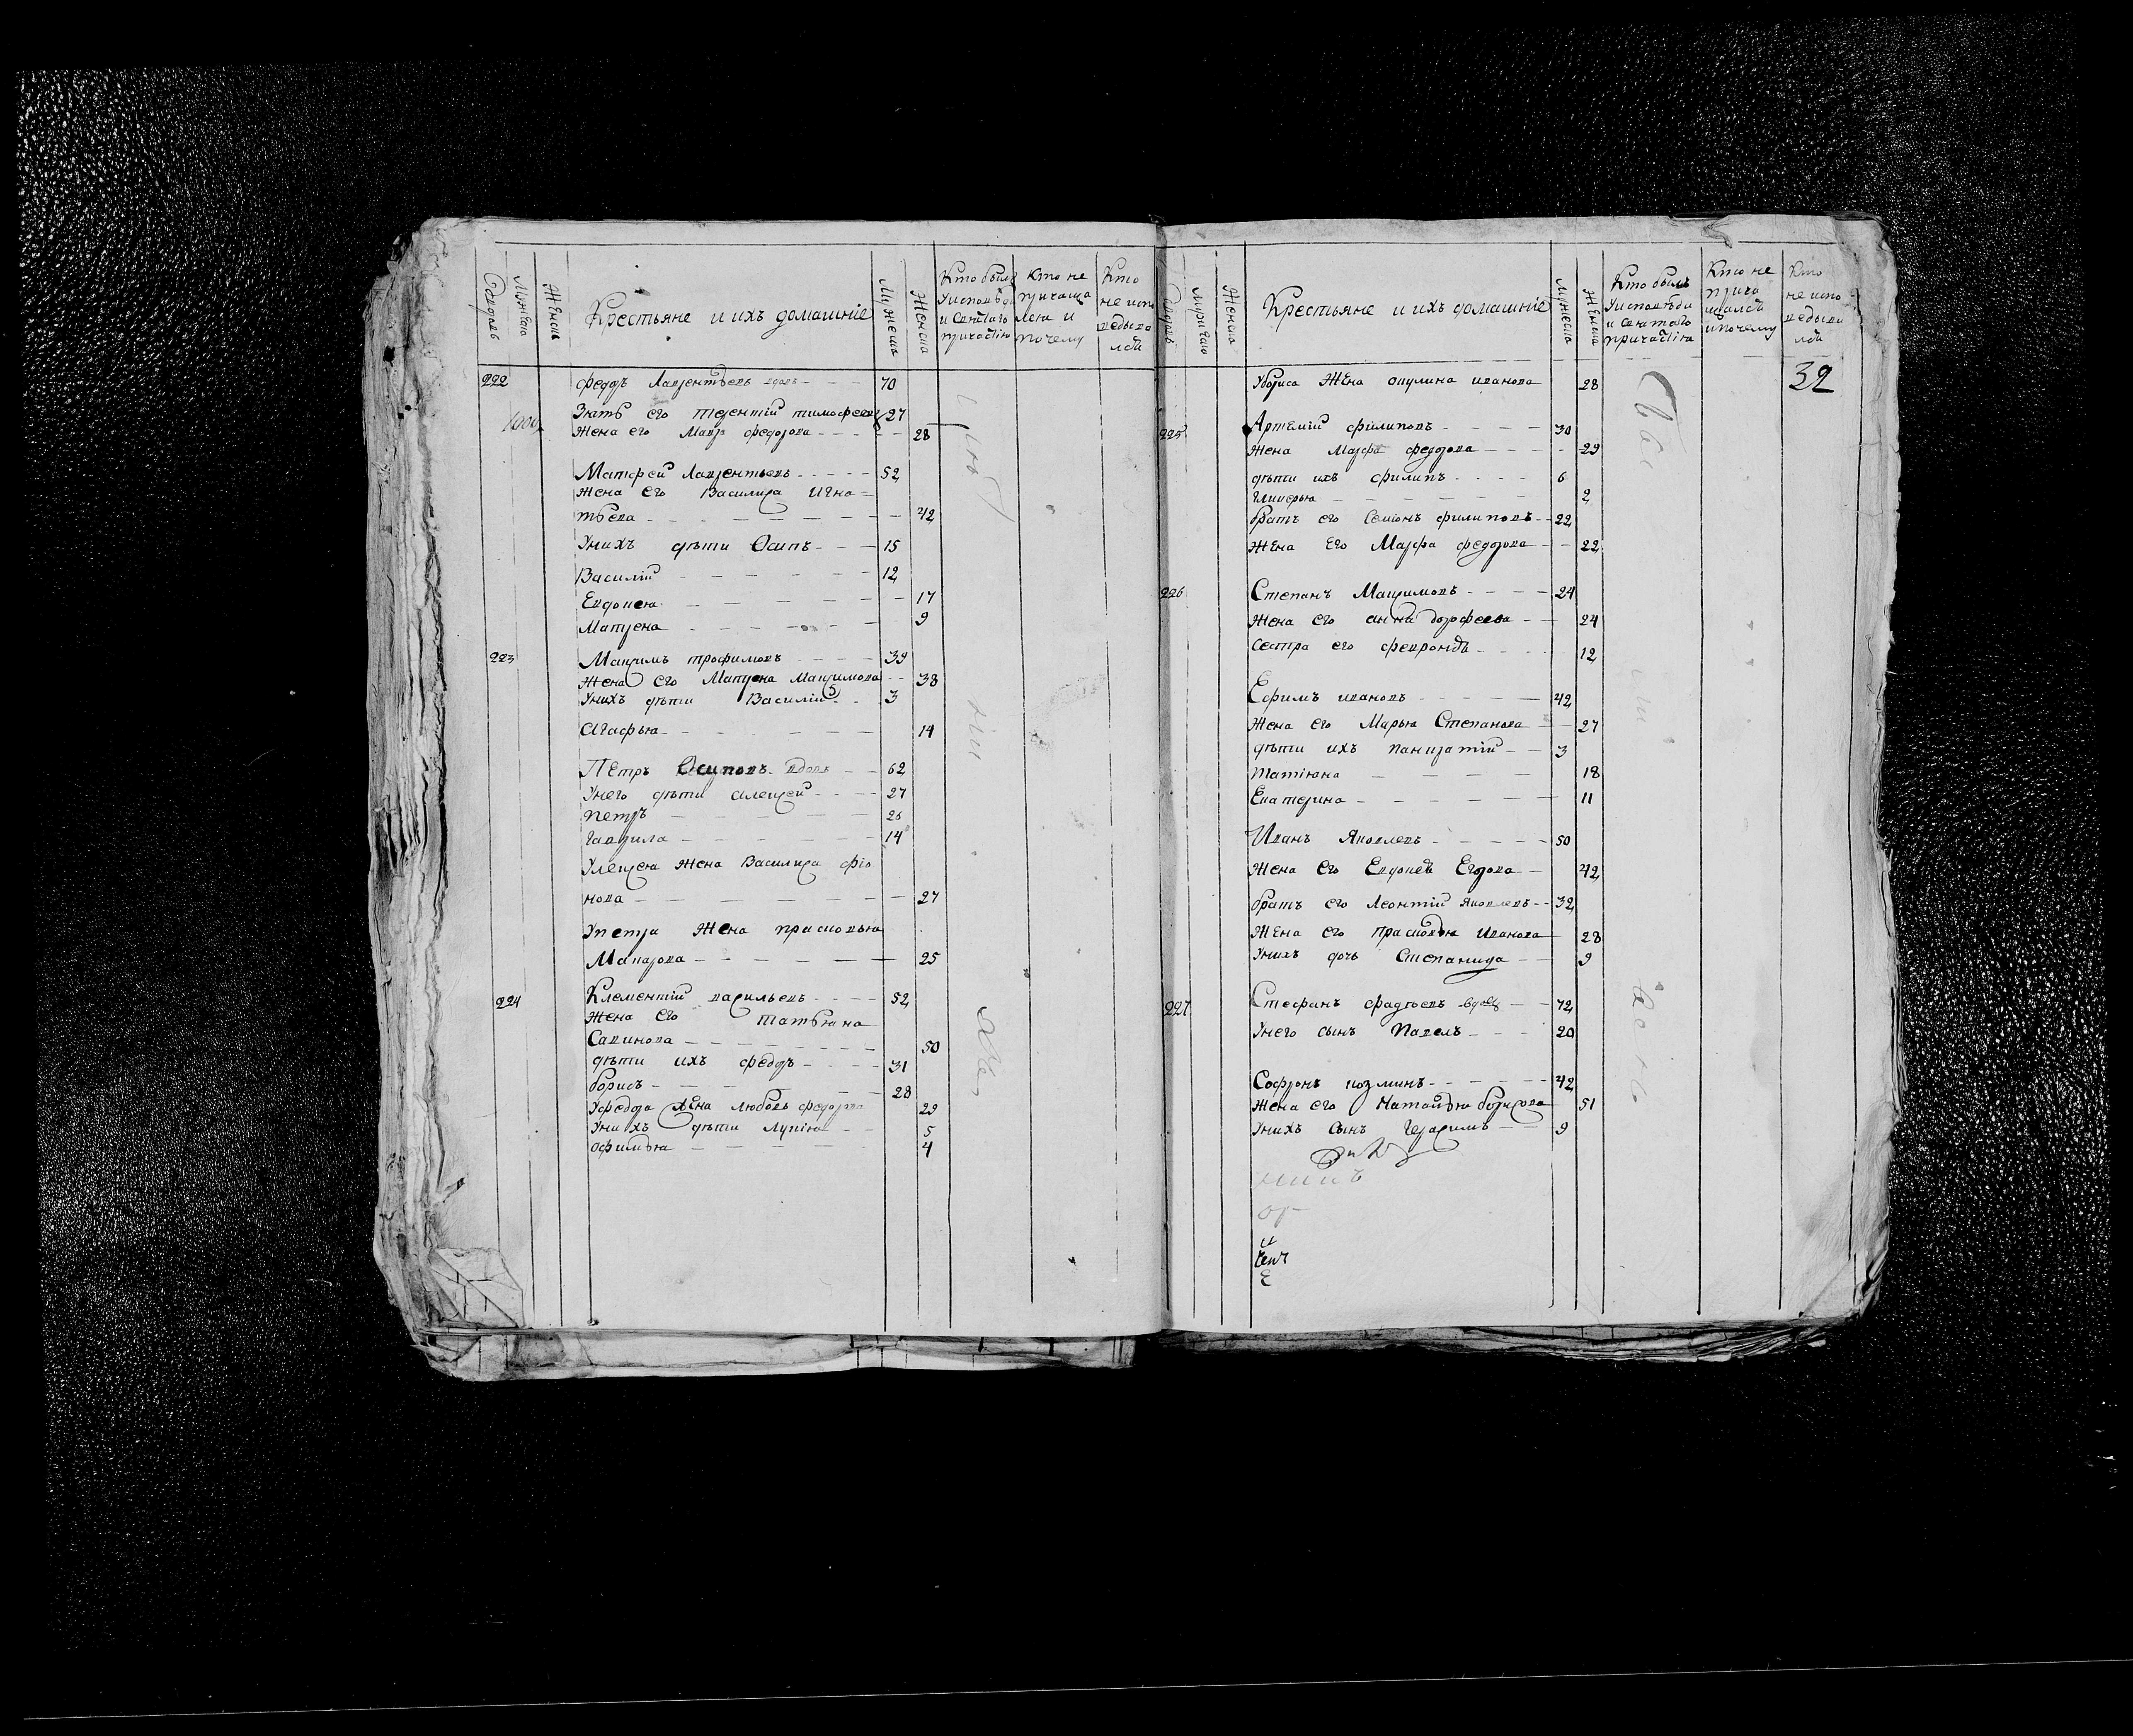 Крестьяне и ихъ домашніе
Мужеска
Женска
Кто былъ
Уисповѣди
и Святаго
причастія
Кто не
причаща
лся и
почему
Кто
не испо
ведыва
лся
222
Федоръ Лаврентьевъ вдовъ 70
Зять его терентій тимофеевъ 27
Жена его Мавра федорова 28
Матфей Лаврентьевъ 52
Жена его Василиса Игна=
тьева 42
Унихъ дѣти Осипъ 15
Василій 12
Евдокея 17
Матрена 9
223
Максимъ трофимовъ 39
Жена его Матрена Максимова 38
Унихъ дѣти Василій 3
Агафья 14
Петръ Осиповъ вдовъ 62
Унего дѣти алексей 27
Петръ 26
Гаврила 14
Улексея Жена Василиса фіо
нова 27
Упетра Жена прасковья
Макарова 25
224
Клементій васильевъ 52
Жена его татьяна
Савинова 50
дѣти ихъ федоръ 31
борисъ 28
Уфедора Жена любовь федорова 29
Унихъ дѣти Лукія 5
Офимья 4
Крестьяне и ихъ домашніе
Мужеска
Женска
Кто былъ
Уисповѣди
и Святаго
причастія
Кто не
прича
щался
и почему
Кто
не испо
ведыва
лся
32
Убориса Жена акулина иванова 28
225
Артемій филиповъ 30
Жена Марфа федорова 29
дѣти ихъ филипъ 6
Гликерья 2
братъ его Семіонъ филиповъ 22
Жена Его Марфа федорова 22
226
Степанъ Максимовъ 24
Жена его анна дорофеева 24
Сестра его феврония 12
Ефимъ ивановъ 42
Жена его Марья Степанова 27
дѣти ихъ панкратій 3
татіяна 18
Екатерина 11
Иванъ Яковлевъ 50
Жена его Евдокея Егорова 42
братъ его Леонтій Яковлевъ 32
Жена его прасковья Иванова 28
Унихъ дочь Степанида 9
227
Стефанъ фадѣевъ вдовъ 72
Унего сынъ Павелъ 20
Софронъ козминъ 42
Жена его Наталья борисова 51
Унихъ Сынъ Герасимъ 9